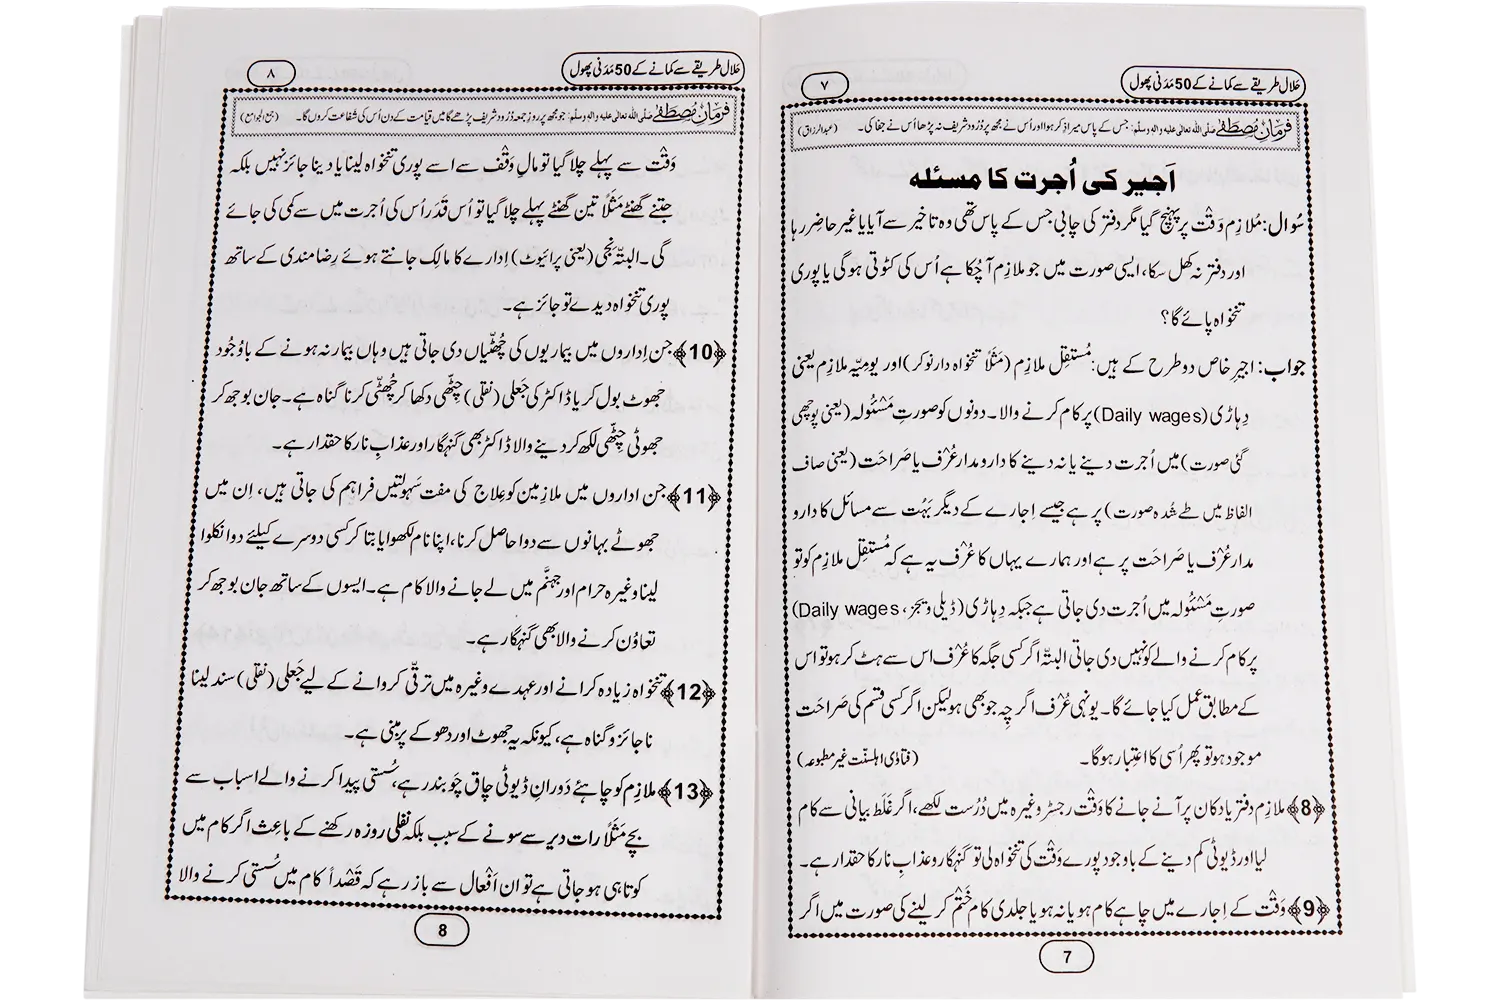 حلال طریقے سے کمانے کے 50 مَدَنی پھول
۷
فرمانِ مصطفٰے صلی اللہ تعالٰی علیہ واٰلہٖ وسلم: جس کے پاس میرا ذکر ہوا اور اُس نے مجھ پر دُرُود شریف نہ پڑھا اُس نے جفا کی۔ (عبدالرزاق)
اَجیر کی اُجرت کا مسئلہ
سُوال: مُلازِم وَقْت پر پہنچ گیا مگر دفتر کی چابی جس کے پاس تھی وہ تاخیر سے آیا یا غیر حاضِر رہا
اور دفتر نہ کھل سکا، ایسی صورت میں جو ملازِم آ چُکا ہے اُس کی کٹوتی ہوگی یا پوری
تنخواہ پائے گا؟
جواب: اجیرِ خاص دو طرح کے ہیں: مُستَقِل ملازِم (مَثَلاً تنخواہ دار نوکر) اور یومِیّہ ملازِم یعنی
دِہاڑی (Daily wages) پر کام کرنے والا۔ دونوں کو صورتِ مَسْئُولہ (یعنی پوچھی
گئی صورت) میں اُجرت دینے یا نہ دینے کا دارومدار عُرْف یا صَراحَت (یعنی صاف
الفاظ میں طے شُدہ صورت) پر ہے جیسے اِجارے کے دیگر بَہُت سے مسائل کا دارو
مدار عُرْف یا صَراحَت پر ہے اور ہمارے یہاں کا عُرْف یہ ہے کہ مُستَقِل ملازِم کو تو
صورتِ مَسْئُولہ میں اُجرت دی جاتی ہے جبکہ دِہاڑی (ڈیلی ویجز، Daily wages)
پر کام کرنے والے کو نہیں دی جاتی البتّہ اگر کسی جگہ کا عُرْف اس سے ہٹ کر ہو تو اس
کے مطابِق عمل کیا جائے گا۔ یونہی عُرْف اگر چِہ جو بھی ہو لیکن اگر کسی قسم کی صَراحَت
موجود ہو تو پھر اُسی کا اعتِبار ہوگا۔ (فتاوٰی اہلسنّت غیر مطبوعہ)
﴿8﴾ ملازِم دفتر یا دکان پر آنے جانے کا وَقْت رجسٹر وغیرہ میں دُرُست لکھے، اگر غَلَط بیانی سے کام
لیا اور ڈیوٹی کم دینے کے باوجود پورے وَقْت کی تنخواہ لی تو گنہگار و عذابِ نار کا حقدار ہے۔
﴿9﴾ وَقْت کے اِجارے میں چاہے کام ہو یا نہ ہو یا جلدی کام خَتْم کر لینے کی صورت میں اگر
7
حلال طریقے سے کمانے کے 50 مَدَنی پھول
۸
فرمانِ مصطفٰے صلی اللہ تعالٰی علیہ واٰلہٖ وسلم: جو مجھ پر روزِ جمعہ دُرُود شریف پڑھے گا میں قیامت کے دن اُس کی شفاعت کروں گا۔ (جمع الجوامع)
وَقْت سے پہلے چلا گیا تو مالِ وَقْف سے اسے پوری تنخواہ لینا یا دینا جائز نہیں بلکہ
جتنے گھنٹے مَثَلاً تین گھنٹے پہلے چلا گیا تو اُس قَدَر اُس کی اُجرت میں سے کمی کی جائے
گی۔ البتّہ نجی (یعنی پرائیوٹ) اِدارے کا مالِک جانتے ہوئے رِضا مندی کے ساتھ
پوری تنخواہ دیدے تو جائز ہے۔
﴿10﴾ جن اِداروں میں بیماریوں کی چُھٹّیاں دی جاتی ہیں وہاں بیمار نہ ہونے کے باوُجُود
جھوٹ بول کر یا ڈاکٹر کی جَعلی (نقلی) چٹّھی دکھا کر چُھٹّی کرنا گناہ ہے۔ جان بوجھ کر
جھوٹی چٹّھی لکھ کر دینے والا ڈاکٹر بھی گنہگار اور عذابِ نار کا حقدار ہے۔
﴿11﴾ جن اداروں میں ملازِمین کو عِلاج کی مفت سَہولتیں فراہم کی جاتی ہیں، اِن میں
جھوٹے بہانوں سے دوا حاصل کرنا، اپنا نام لکھوا یا بتا کر کسی دوسرے کیلئے دوا نکلوا
لینا وغیرہ حرام اور جہنَّم میں لے جانے والا کام ہے۔ ایسوں کے ساتھ جان بوجھ کر
تعاوُن کرنے والا بھی گنہگار ہے۔
﴿12﴾ تنخواہ زیادہ کرانے اور عہدے وغیرہ میں ترقّی کروانے کے لیے جَعلی (نقلی) سند لینا
ناجائز و گناہ ہے، کیونکہ یہ جھوٹ اور دھوکے پر مبنی ہے۔
﴿13﴾ ملازِم کو چاہئے دَورانِ ڈیوٹی چاق چَوبند رہے، سُستی پیدا کرنے والے اسباب سے
بچے مَثَلاً رات دیر سے سونے کے سبب بلکہ نفلی روزہ رکھنے کے باعِث اگر کام میں
کوتاہی ہو جاتی ہے تو ان اَفْعال سے باز رہے کہ قَصْداً کام میں سُستی کرنے والا
8